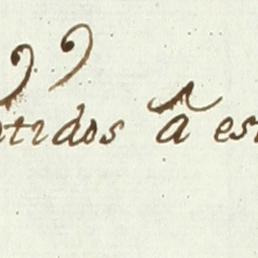 tidos â es